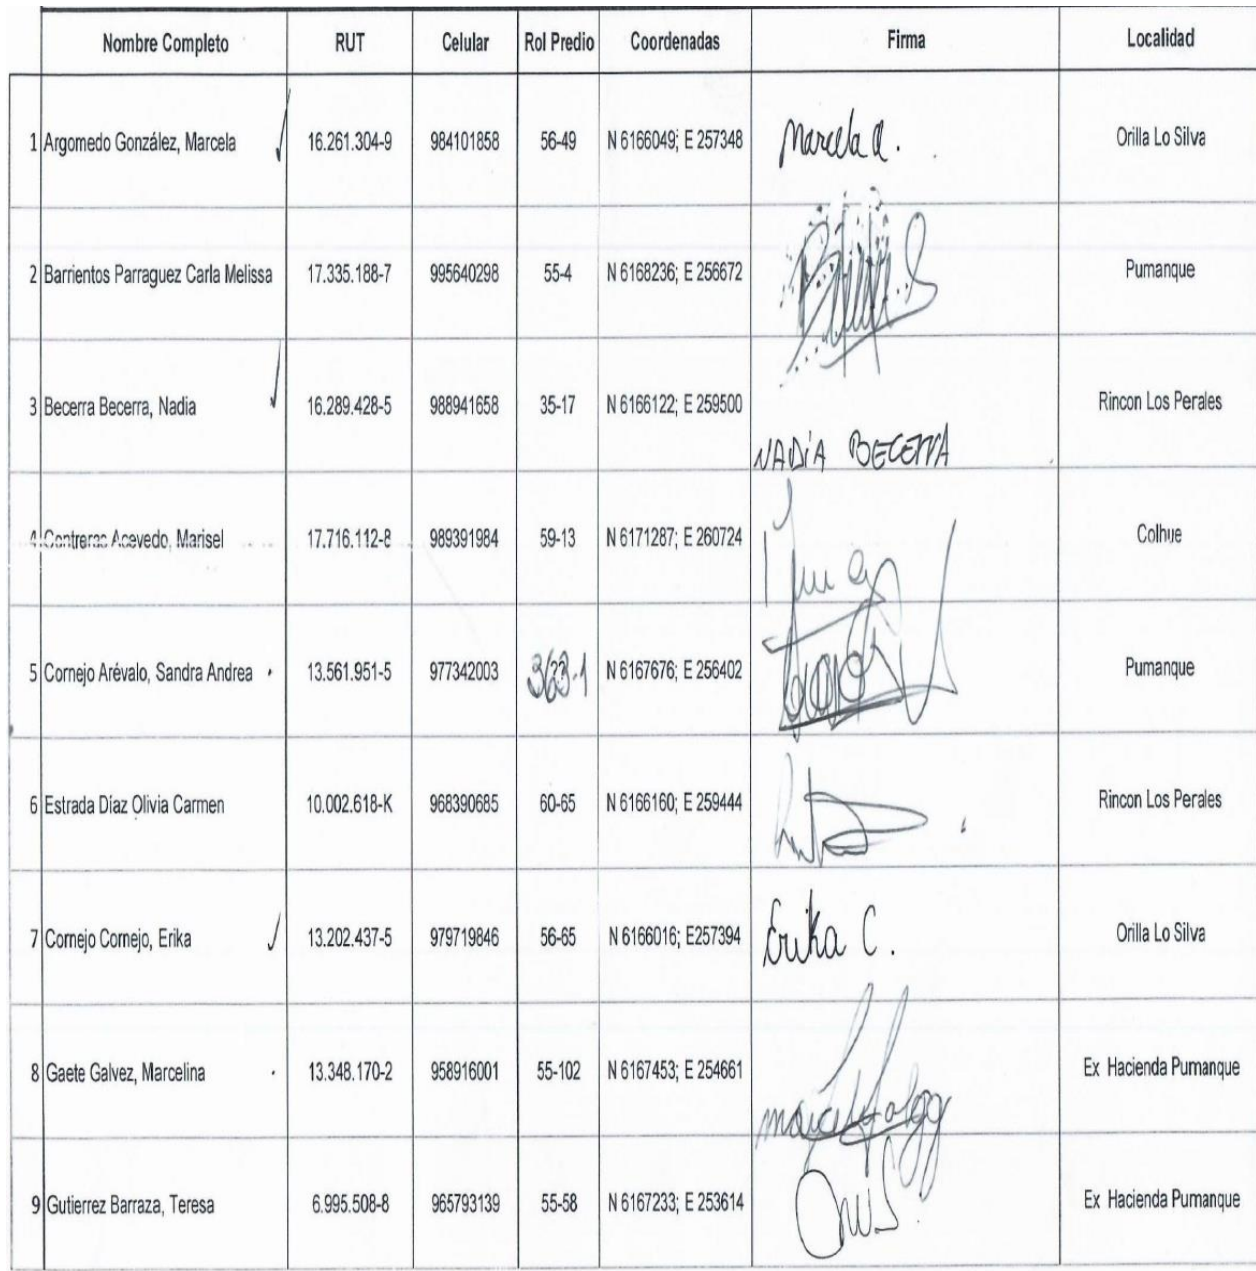 Nombre Completo RUT Celular Rol Predio Coordenadas Firma Localidad
1 Argomedo González, Marcela 16.261.304-9 984101858 56-49 N 6166049; E 257348 Marcela A. Orilla Lo Silva
2 Barrientos Parraguez Carla Melissa 17.335.188-7 995640298 55-4 N 6168236; E 256672 Pumanque
3 Becerra Becerra, Nadia 16.289.428-5 988941658 35-17 N 6166122; E 259500 NADiA BECERRA Rincon Los Perales
4 Contreras Acevedo, Marisel 17.716.112-8 989391984 59-13 N 6171287; E 260724 Colhue
5 Cornejo Arévalo, Sandra Andrea 13.561.951-5 977342003 N 6167676; E 256402 Pumanque
6 Estrada Díaz Olivia Carmen 10.002.618-K 968390685 60-65 N 6166160; E 259444 Rincon Los Perales
7 Cornejo Cornejo, Erika 13.202.437-5 979719846 56-65 N 6166016; E257394 Erika C. Orilla Lo Silva
8 Gaete Galvez, Marcelina 13.348.170-2 958916001 55-102 N 6167453; E 254661 Ex Hacienda Pumanque
9 Gutierrez Barraza, Teresa 6.995.508-8 965793139 55-58 N 6167233; E 253614 Ex Hacienda Pumanque